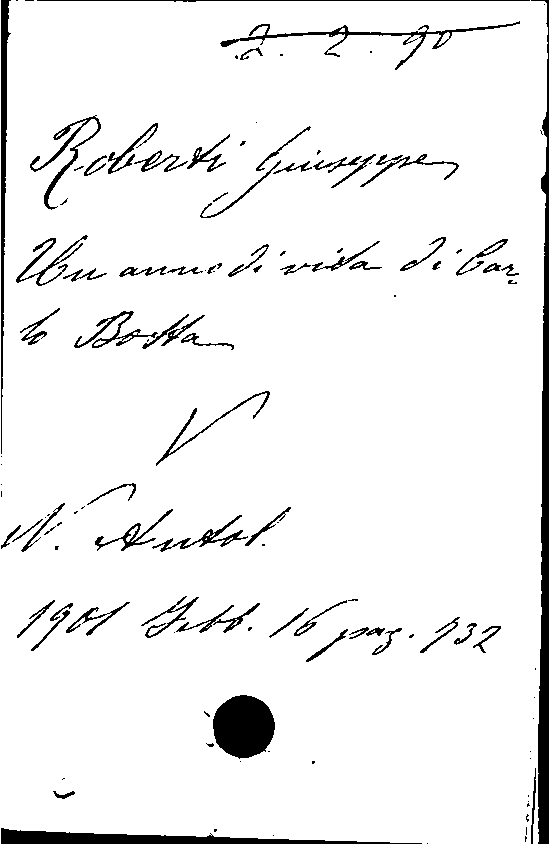 2. 2. 90
Roberti Giuseppe
Un anno di vita di Car-
lo Botta
V
N. Antol.
1901 Febb. 16 pag. 732